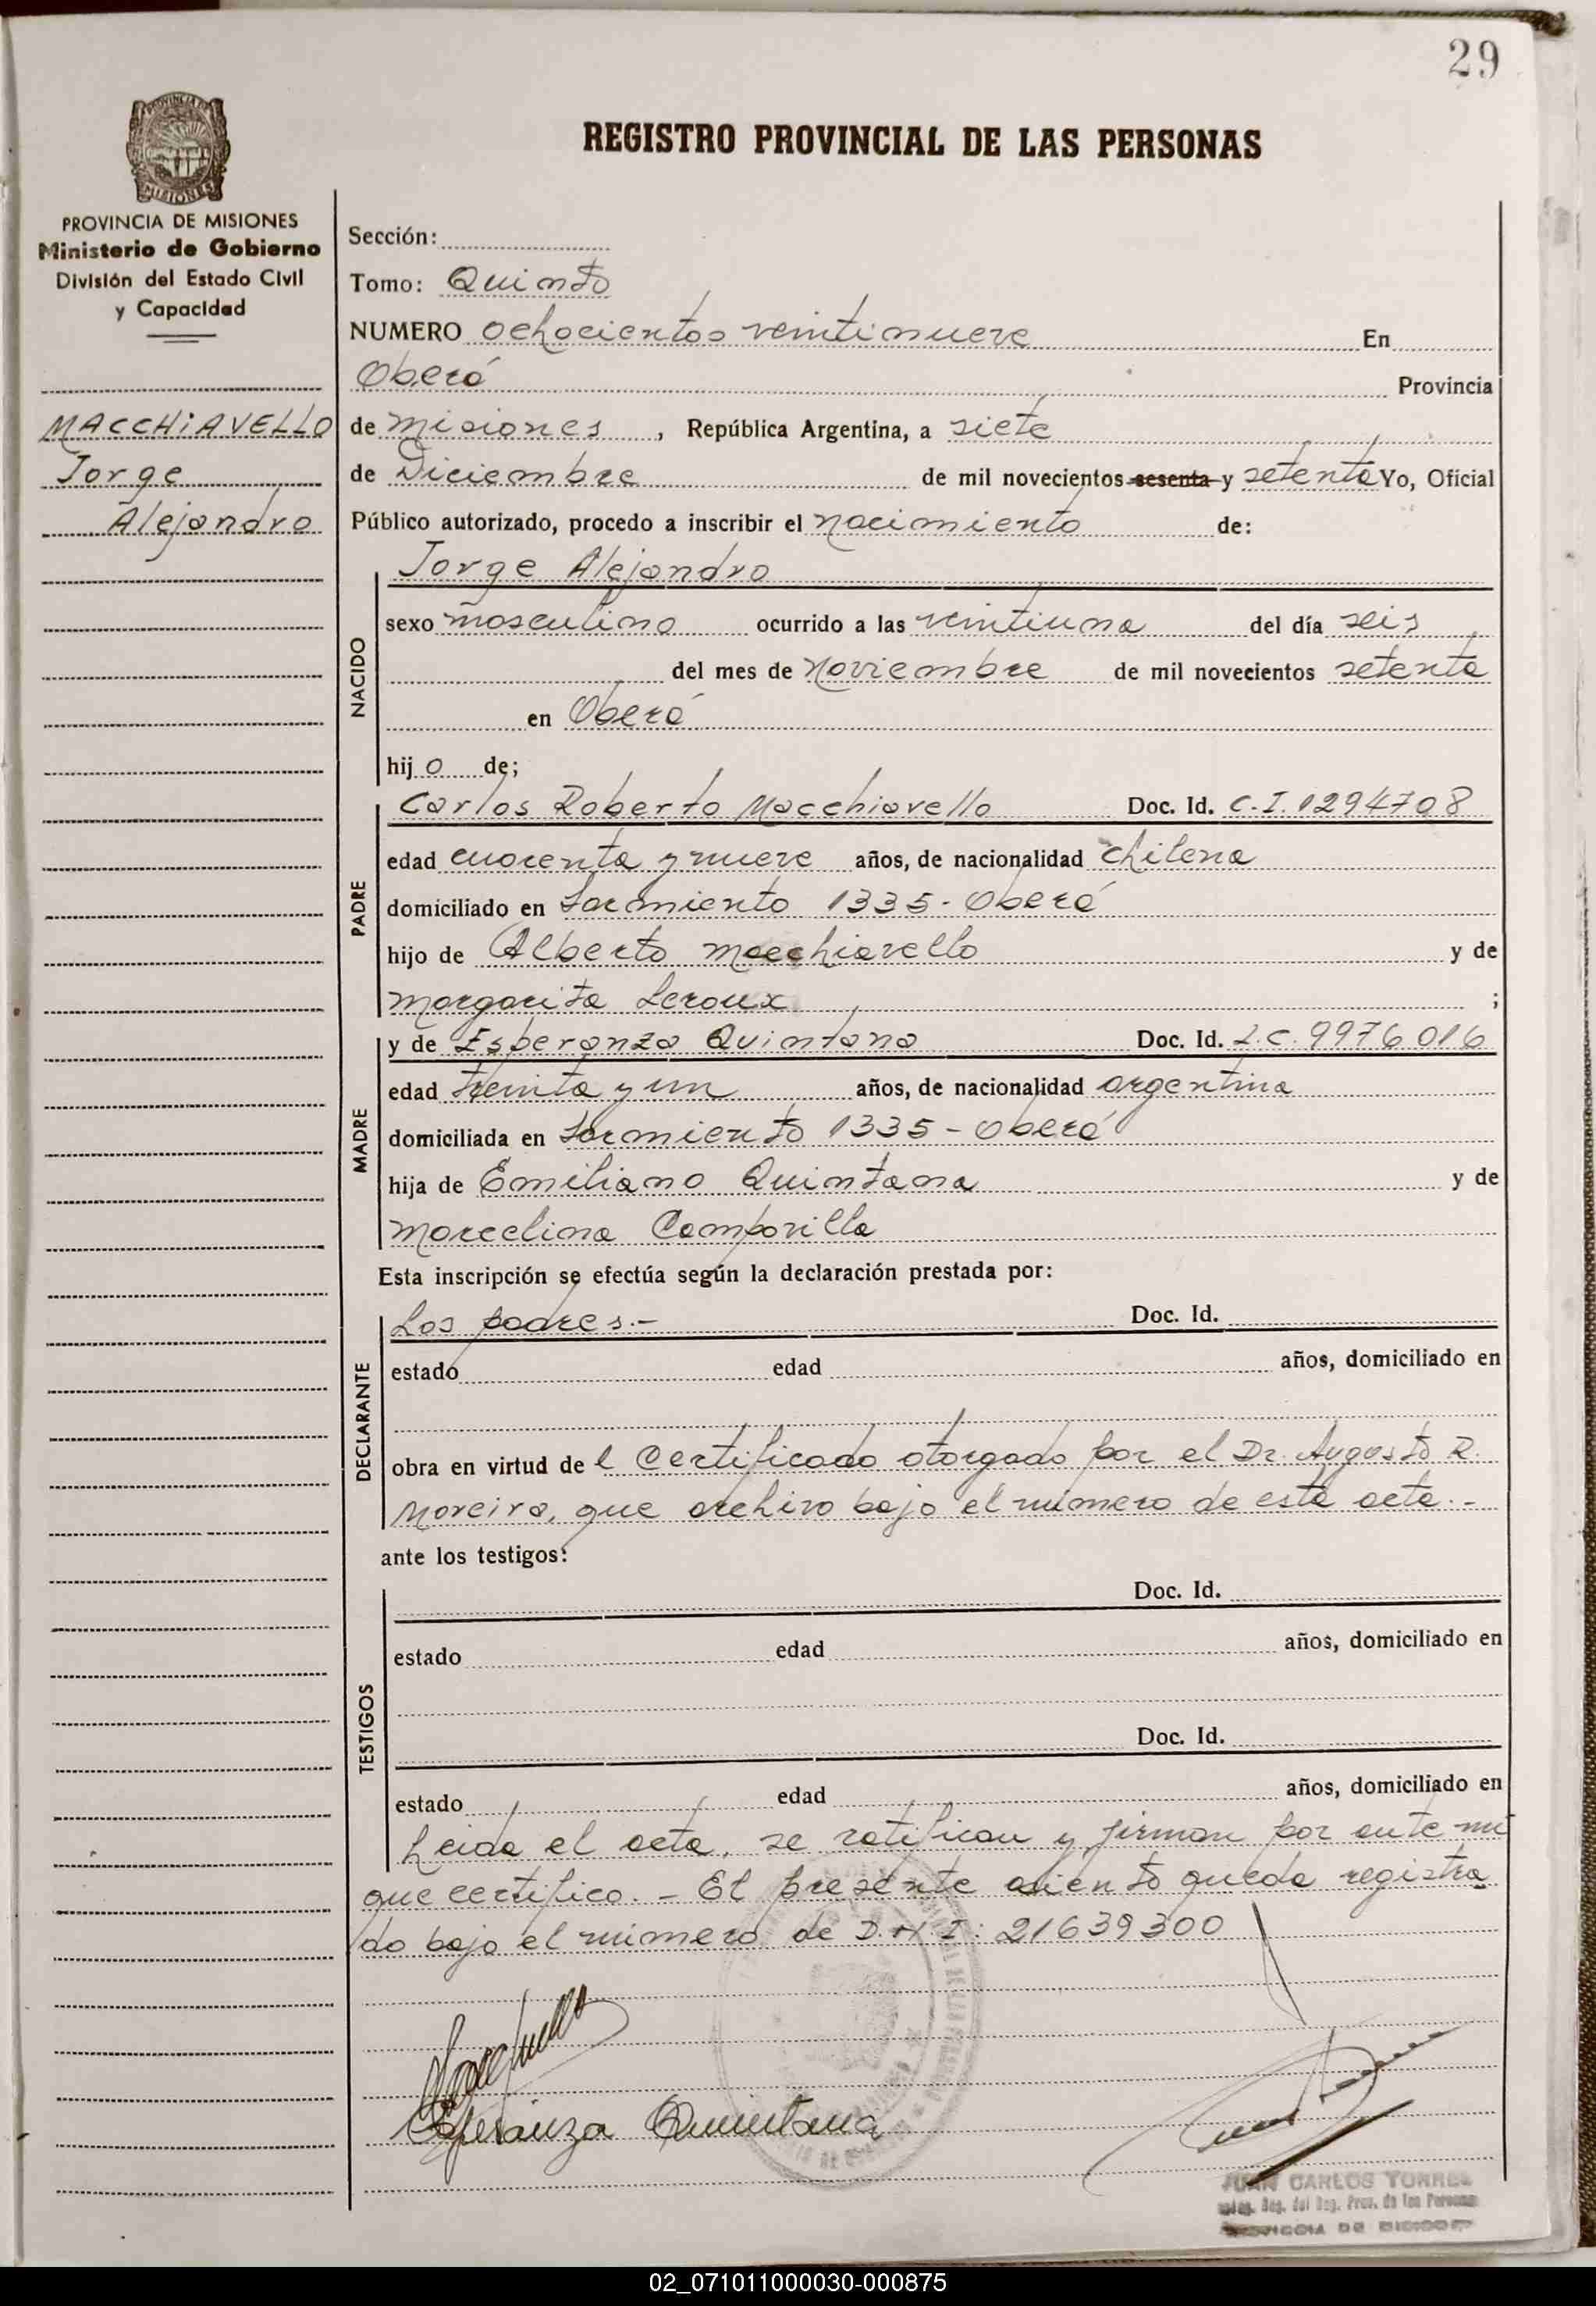 29
REGISTRO PROVINCIAL DE LAS PERSONAS
PROVINCIA DE MISIONES
MISIONES
PROVINCIA DE MISIONES
Ministerio de Gobierno
División del Estado Civil
y Capacidad
MACCHiAVELLO
Jorge
Alejandro
Sección:
Tomo: Quinto
NUMERO ochocientos veintinueve En
Oberá Provincia
de Misiones, República Argentina, a siete
de Diciembre de mil novecientos sesenta y setenta Yo, Oficial
Público autorizado, procedo a inscribir el nacimiento de:
NACIDO
Jorge Alejandro
sexo masculino ocurrido a las veintiuna del día seis
del mes de Noviembre de mil novecientos setenta
en Oberá
hij o de;
PADRE
Carlos Roberto Macchiavello Doc. Id. C.I. 1294708
edad cuarenta y nueve años, de nacionalidad chilena
domiciliado en Sarmiento 1335 - Oberá
hijo de Alberto Macchiavello y de
Margarita Leroux ;
MADRE
y de Esperanza Quintana Doc. Id. L.C. 9976016
edad treinta y un años, de nacionalidad argentina
domiciliada en Sarmiento 1335 - Oberá
hija de Emiliano Quintana y de
Marcelina Camporilla
Esta inscripción se efectúa según la declaración prestada por:
DECLARANTE
Los padres.- Doc. Id.
estado edad años, domiciliado en
obra en virtud de l Certificado otorgado por el Dr. Augusto R.
Moreira, que archivo bajo el número de esta acta.-
ante los testigos:
TESTIGOS
Doc. Id.
estado edad años, domiciliado en
Doc. Id.
estado edad años, domiciliado en
Leida el acta, se ratifican y firman por ante mi
que certifico. - El presente asiento queda registra
do bajo el número de D.N I: 21639300
Esperanza Quintana
JUAN CARLOS TORRES
Reg. del Reg. Prov. de las Personas
PROVINCIA DE MISIONES
02_071011000030-000875